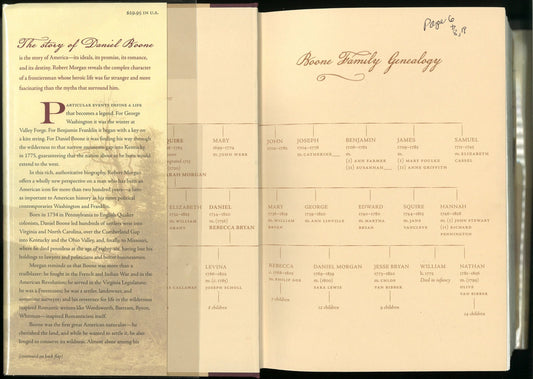 $29.95 IN U.S.
The story of Daniel Boone
is the story of America—its ideals, its promise, its romance,
and its destiny. Robert Morgan reveals the complex character
of a frontiersman whose heroic life was far stranger and more
fascinating than the myths that surround him.
PARTICULAR EVENTS DEFINE A LIFE
that becomes a legend. For George
Washington it was the winter at
Valley Forge. For Benjamin Franklin it began with a key on
a kite string. For Daniel Boone it was finding his way through
the wilderness to that narrow mountain gap into Kentucky
in 1775, guaranteeing that the nation about to be born would
extend to the west.
In this rich, authoritative biography, Robert Morgan
offers a wholly new perspective on a man who has been an
American icon for more than two hundred years—a hero
as important to American history as his more political
contemporaries Washington and Franklin.
Born in 1734 in Pennsylvania to English Quaker
colonists, Daniel Boone led hundreds of settlers west into
Virginia and North Carolina, over the Cumberland Gap
into Kentucky and the Ohio Valley, and, finally, to Missouri,
where he died penniless at the age of eighty-six, having lost his
holdings to lawyers and politicians and better businessmen.
Morgan reminds us that Boone was more than a
trailblazer: he fought in the French and Indian War and in the
American Revolution; he served in the Virginia Legislature;
he was a Freemason; he was a settler, landowner, and
sometime surveyor; and his reverence for life in the wilderness
inspired Romantic writers like Wordsworth, Bartram, Byron,
Whitman—inspired Romanticism itself.
Boone was the first great American naturalist—he
cherished the land, and while he wanted to settle it, he also
longed to conserve its wildness. Almost alone among his
(continued on back flap)
Page 6
Boone Family Genealogy
SQUIRE
MARY
1699–1774
m. JOHN WEBB
JOHN
JOSEPH
1704–1776
m. CATHERINE
BENJAMIN
1706–1762
m.
(1) ANN FARMER
(2) SUSANNAH
JAMES
1709–1785
m.
(1) MARY FOULKE
(2) ANNE GRIFFITH
SAMUEL
m. ELIZABETH
CASSEL
SARAH MORGAN
ELIZABETH
1732–1825
m. WILLIAM
GRANT
DANIEL
1734–1820
m.
REBECCA BRYAN
MARY
m. WILLIAM
BRYAN
GEORGE
m. ANN LINVILLE
EDWARD
1740–1780
m. MARTHA
BRYAN
SQUIRE
1744–1815
m. JANE
VANCLEVE
HANNAH
1746–1828
m. (1) JOHN STEWART
(2) RICHARD
PENNINGTON
LEVINA
m. (c. 1785)
JOSEPH SCHOLL
8 children
REBECCA
m. PHILIP GOE
7 children
DANIEL MORGAN
1769–1839
m. (1800)
SARA LEWIS
12 children
JESSE BRYAN
1773–1820
m. CHLOE
VAN BIBBER
WILLIAM
b. 1775
Died in infancy
NATHAN
m. (1799)
OLIVE
VAN BIBBER
14 children